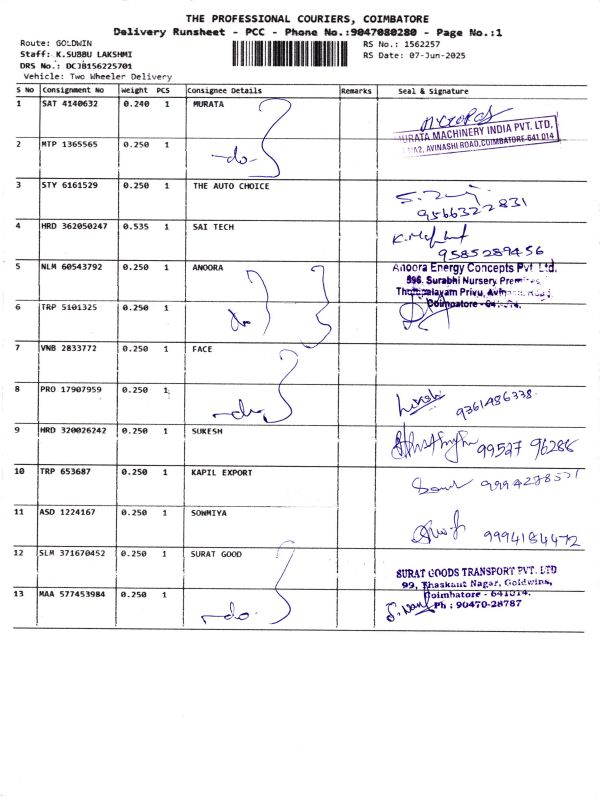 THE PROFESSIONAL COURIERS, COIMBATORE
Delivery Runsheet - PCC - Phone No.:9047080280 - Page No.:1
Route: GOLDWIN RS No.: 1562257
Staff: K.SUBBU LAKSHMI RS Date: 07-Jun-2025
DRS No.: DCJB156225701
Vehicle: Two Wheeler Delivery
S No Consignment No Weight PCS Consignee Details Remarks Seal & Signature
1 SAT 4140632 0.240 1 MURATA
MURATA MACHINERY INDIA PVT. LTD,
AVINASHI ROAD, COIMBATORE-641 014
2 MTP 1365565 0.250 1 -do-
3 STY 6161529 0.250 1 THE AUTO CHOICE
9566322831
4 HRD 362050247 0.535 1 SAI TECH
9585289456
5 NLM 60543792 0.250 1 ANOORA
Anoora Energy Concepts Pvt. Ltd.
596, Surabhi Nursery Premises,
Coimbatore - 641 014.
6 TRP 5101325 0.250 1 do
7 VNB 2833772 0.250 1 FACE
8 PRO 17907959 0.250 1 -do-
9361486338
9 HRD 320026242 0.250 1 SUKESH
99527 96288
10 TRP 653687 0.250 1 KAPIL EXPORT
11 ASD 1224167 0.250 1 SOWMIYA
9994184472
12 SLM 371670452 0.250 1 SURAT GOOD
SURAT GOODS TRANSPORT PVT. LTD
99, Bhaskant Nagar, Goldwins,
Coimbatore - 641014.
Ph : 90470-28787
13 MAA 577453984 0.250 1 -do-